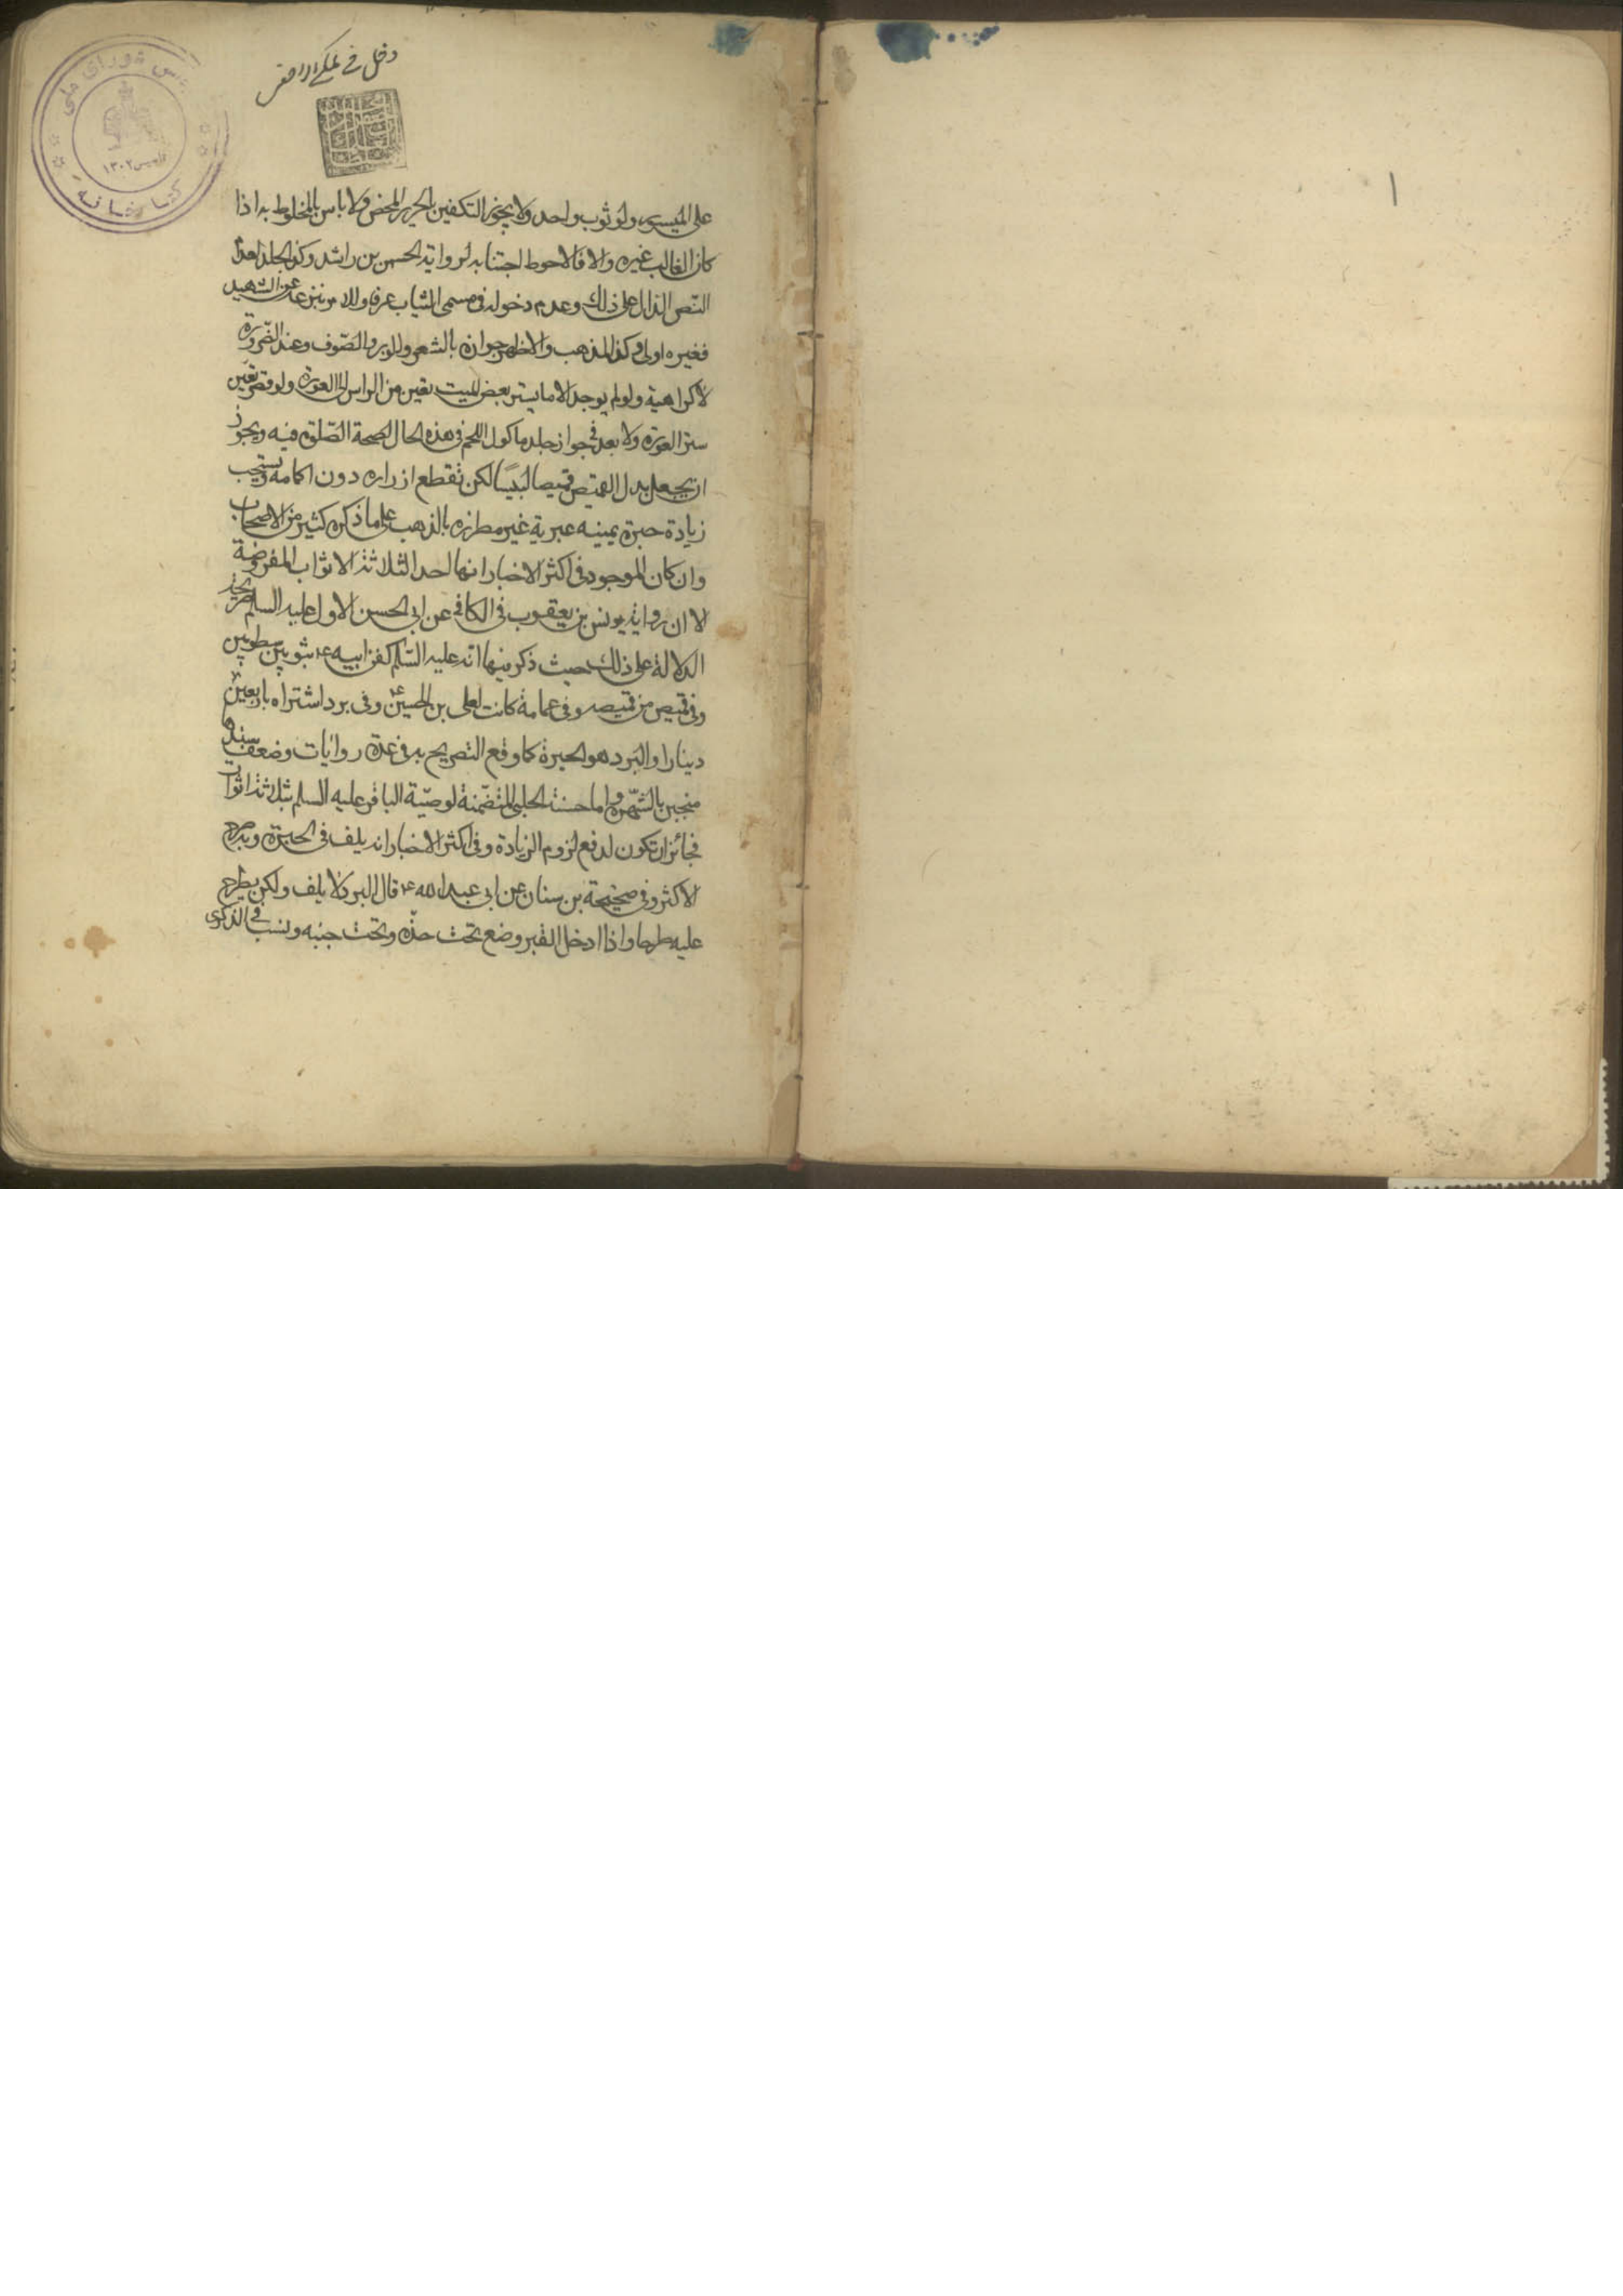 ۱
دخل في
مجلس شورای ملی
تأسیس ۱۳۰۲
کتابخانه
على الميسور ولو ثوب واحد ولا يجوز التكفين بالحرير المحض ولا باس بالمخلوط به اذا
كان الغالب غيره والا فالاحوط اجتنابه لرواية الحسن بن راشد وكذا الجلد لعدم
النص الدال على ذلك وعدم دخوله في مسمى الثياب عرفا وللامر بنزعه عن الشهيد
فغيره اولى وكذا المذهب والاظهر جوازه بالشعر والوبر والصوف وعند الضرورة
لا كراهية ولو لم يوجد الا ما يستر بعض الميت تعين من الراس الى العورة ولو قصر تعين
ستر العورة ولا بعد في جواز جلد ماكول اللحم في هذه الحال لصحة الصلوة فيه ويجوز
ان يجعل بدل القميص قميصا لبيسا لكن تقطع ازراره دون اكمامه ويستحب
زيادة حبرة يمينه عبرية غير مطرزه بالذهب على ما ذكره كثير من الاصحاب
وان كان الموجود في اكثر الاخبار انها احد الثلاثة الاثواب المفروضة
لا ان رواية يونس بن يعقوب في الكافي عن ابي الحسن الاول عليه السلم صريحة
الدلالة على ذلك حيث ذكر فيها انه عليه السلم كفن ابيه ع بثوبين شطويين
وفي قميص من قميصه وفي عمامة كانت لعلى بن الحسين ع وفي برد اشتراه باربعين
دينارا والبرد هو الحبرة كما وقع التصريح به في عدة روايات وضعف سندها
منجبر بالشهرة واما حسنة الحلبي المتضمنة لوصية الباقر عليه السلم بثلاثة اثواب
فجائز ان تكون لدفع لزوم الزيادة وفي اكثر الاخبار انه يلف في الحبرة وبه صرح
الاكثر وفي صحيحة بن سنان عن ابي عبد الله ع قال البرد لا يلف ولكن يطرح
عليه طرحا واذا ادخل القبر وضع تحت خده وتحت جنبه ونسب في الذكرى